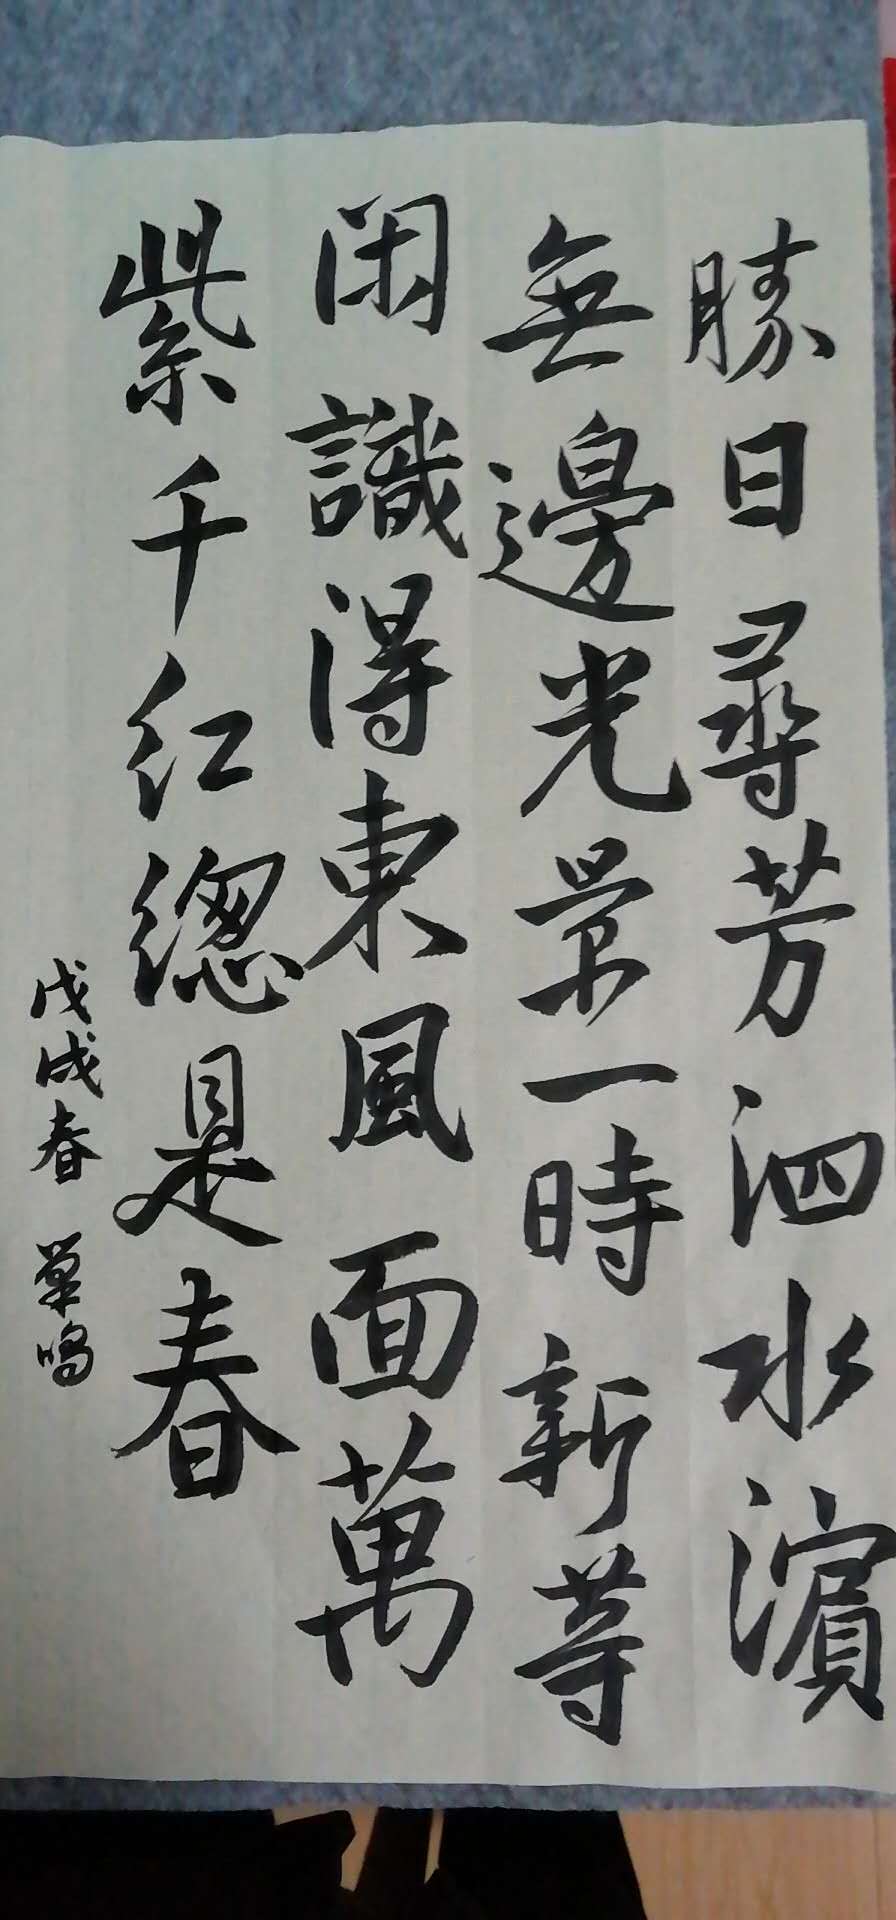 勝日尋芳泗水濱
無邊光景一時新等
閑識得東風面萬
紫千紅緫是春
戊戌春 單鳴